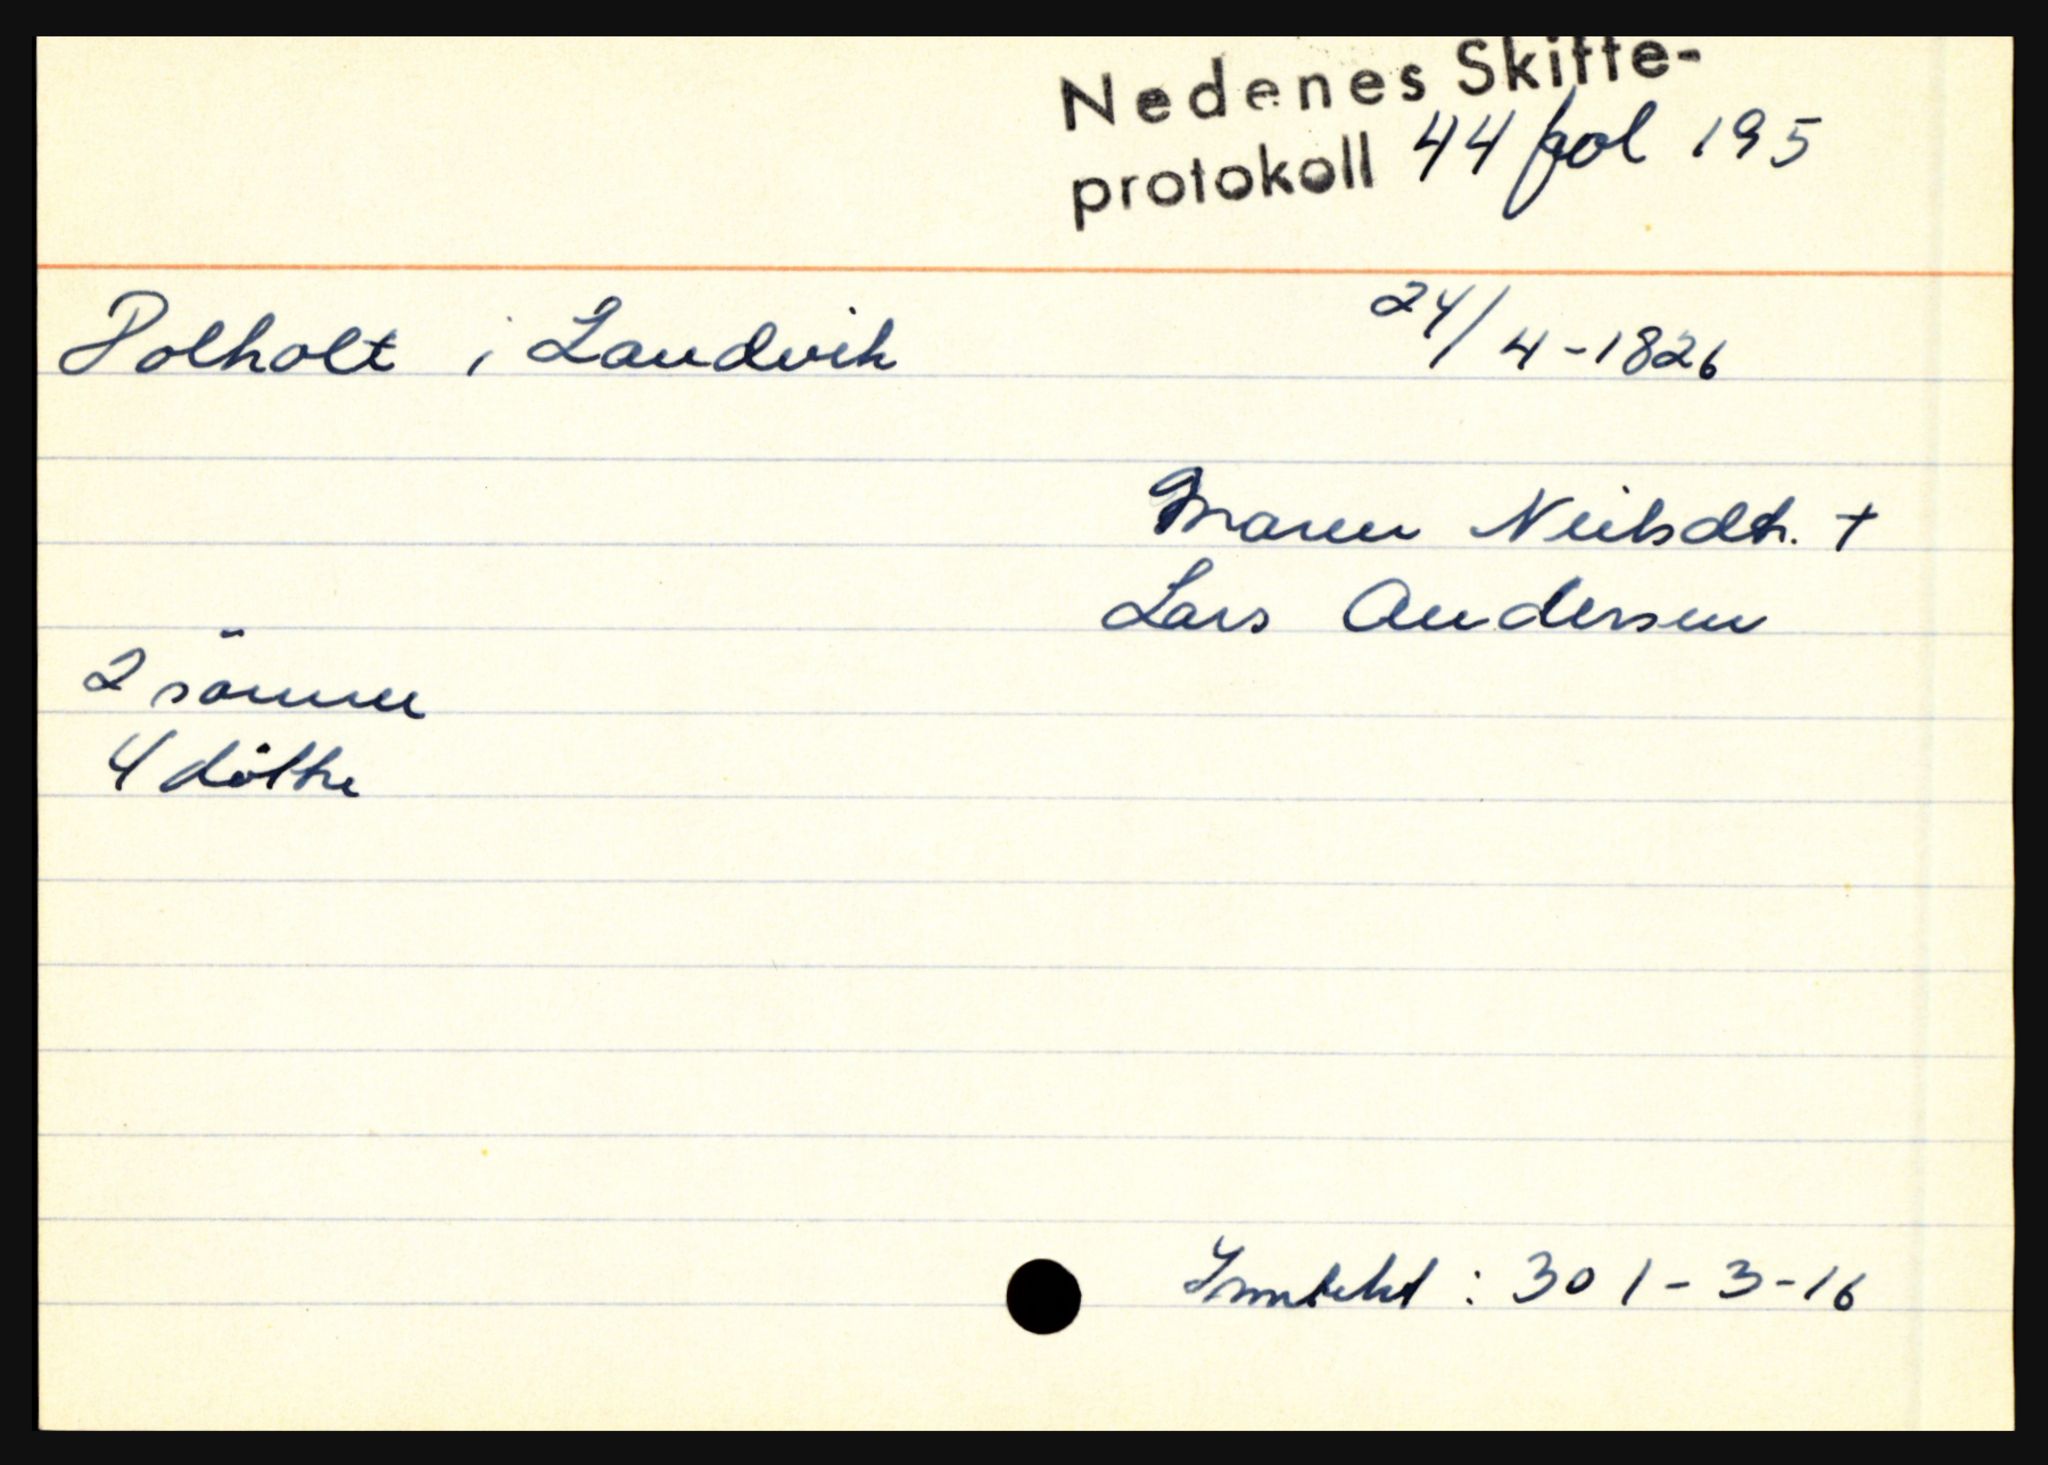 Nedenes Skifte-
protokoll 44 fol 195
Dolholt i Landvik 24/4-1826
Maren Neilsdtr. +
Lars Andersen
2 sönner
4 döttre
: 301-3-16